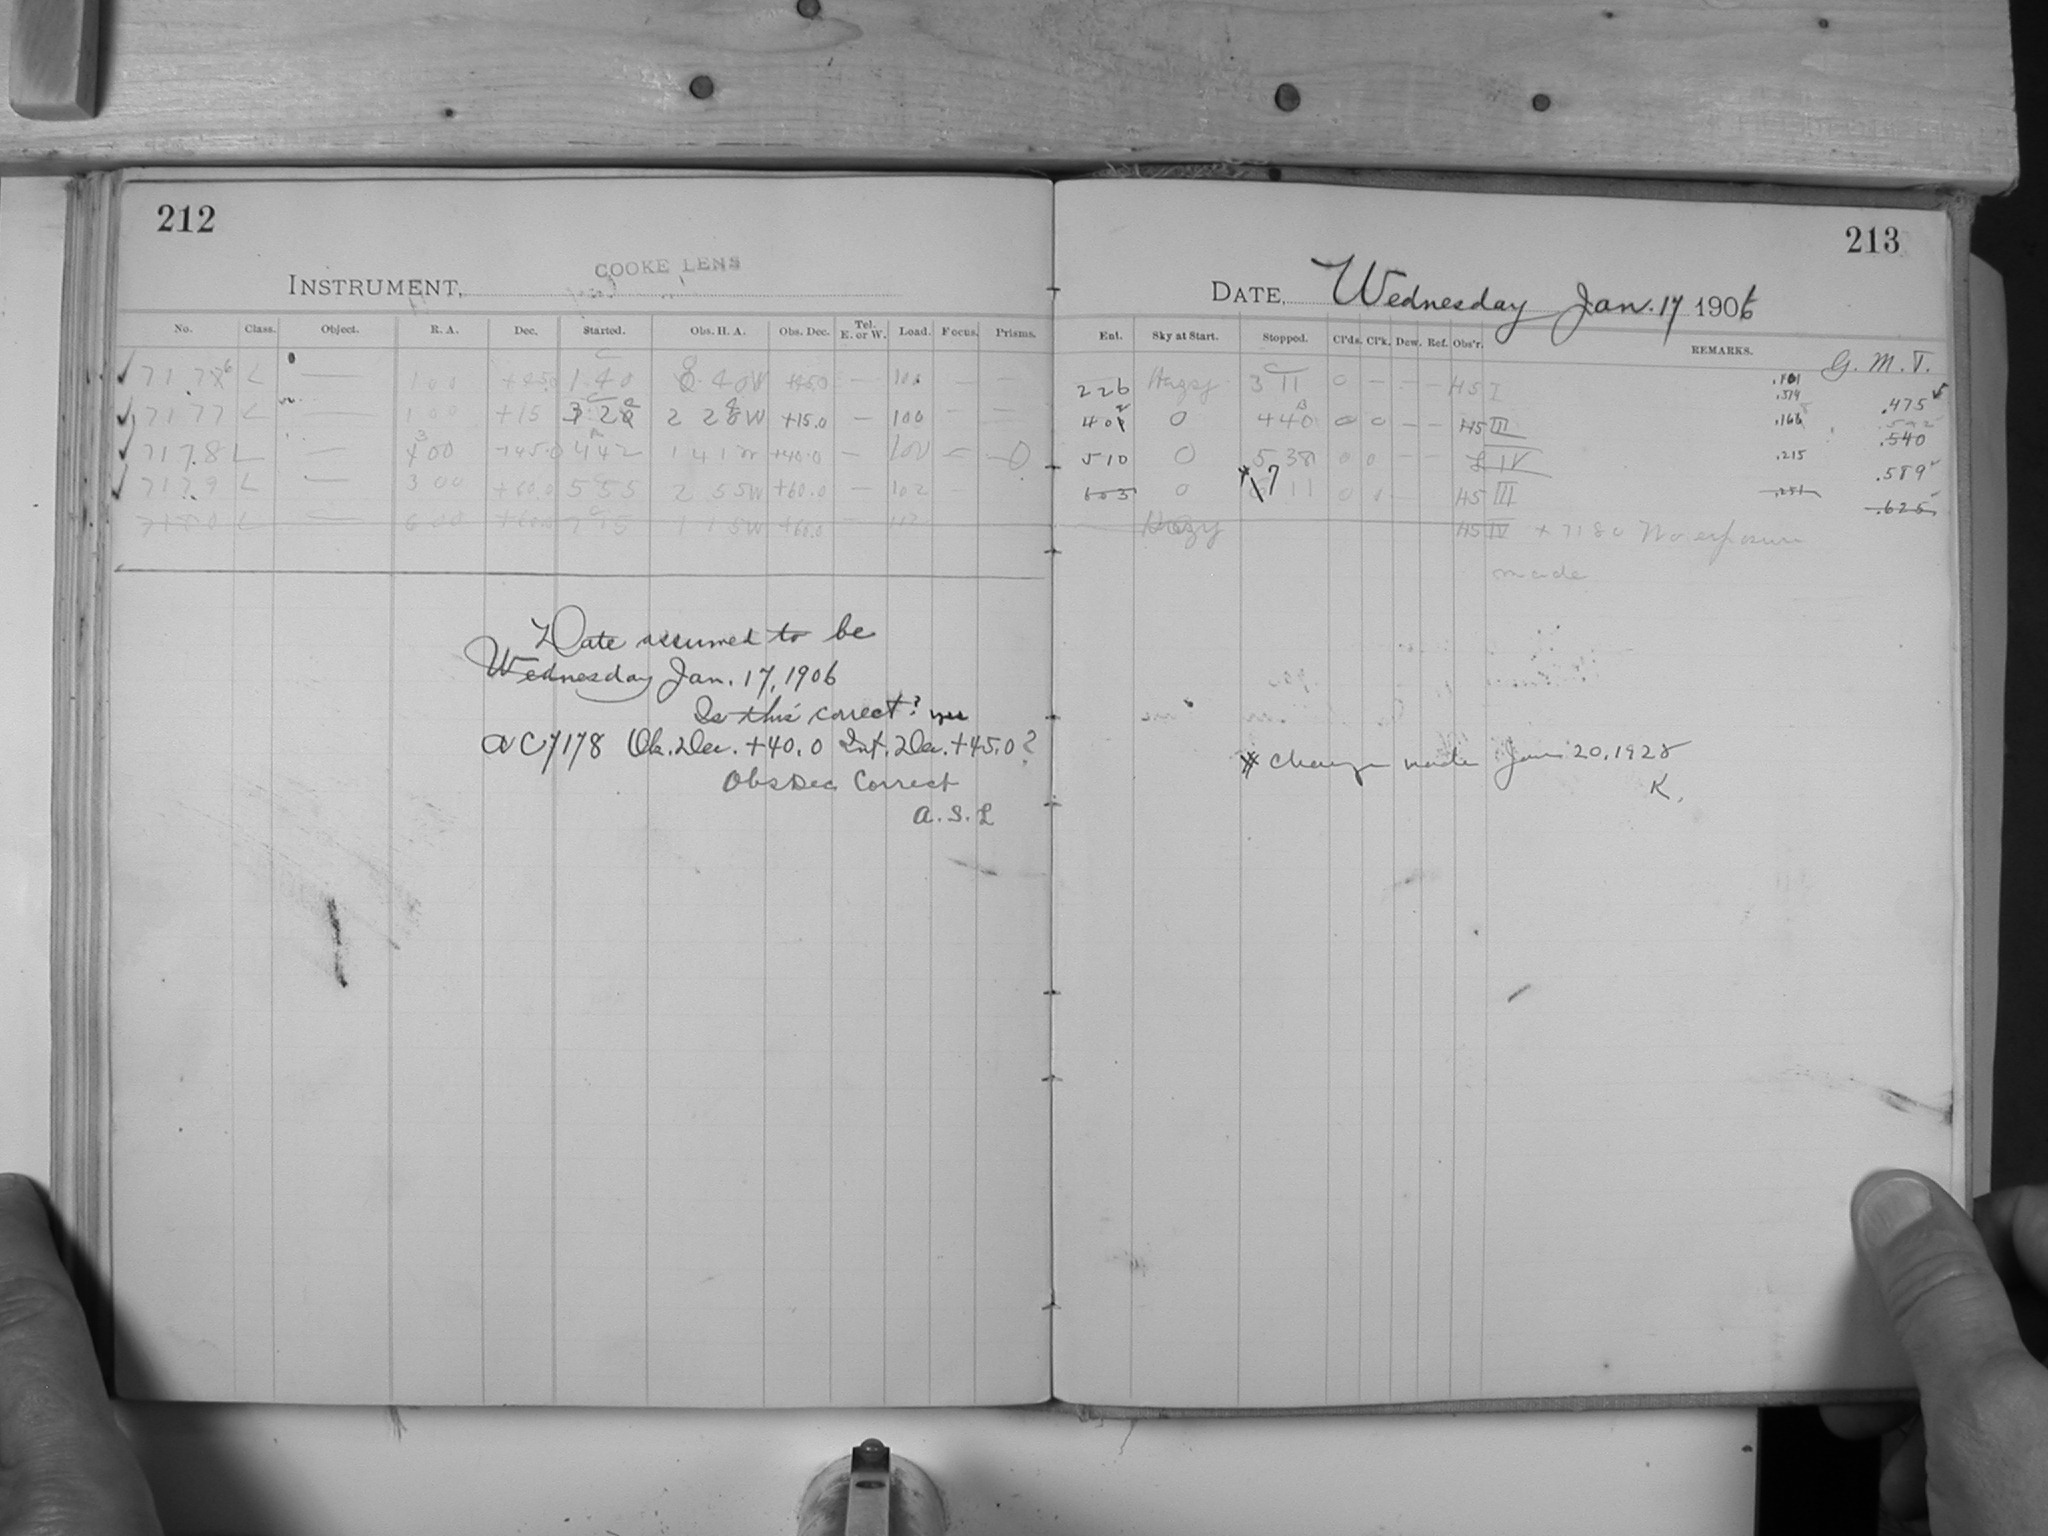 212
COOKE LENS
INSTRUMENT,
No. Class. Object. R. A. Dec. Started. Obs. H. A. Obs. Dec. Tel. E. or W. Load. Focus. Prisms.
✓ 7178 6 L — 1 00 +45.0 1 40 0 40W +45.0 — 100 — —
✓ 7177 L — 1 00 +15 3 28 2 28W +15.0 — 100 — —
✓ 7178 L — 3 00 +45.0 4 42 1 41W +40.0 — 100 —
✓ 7179 L — 3 00 +60.0 5 55 2 55W +60.0 — 102 —
7180 L — 6 00 +60.0 7 15 1 15W +60.0 — 102
Date assumed to be
Wednesday Jan. 17, 1906
Is this correct? yes
AC7178 Ob. Dec. +40.0 Int. Dec. +45.0?
Obs Dec Correct
A. S. L
213
DATE, Wednesday Jan. 17 1906
Ent. Sky at Start. Stopped. Cl'ds. Cl'k. Dew. Ref. Obs'r. REMARKS. G. M. T.
226 Hazy 3 11 0 — — — HS I .475
402 0 4 40 0 0 — — HS III .166 .540
510 0 5 38 0 0 — — L IV .215 .589
603 0 * 7 11 0 0 — HS III .251 .625
Hazy HS IV + 7180 No exposure
made
* Change made Jan 20, 1928
K.